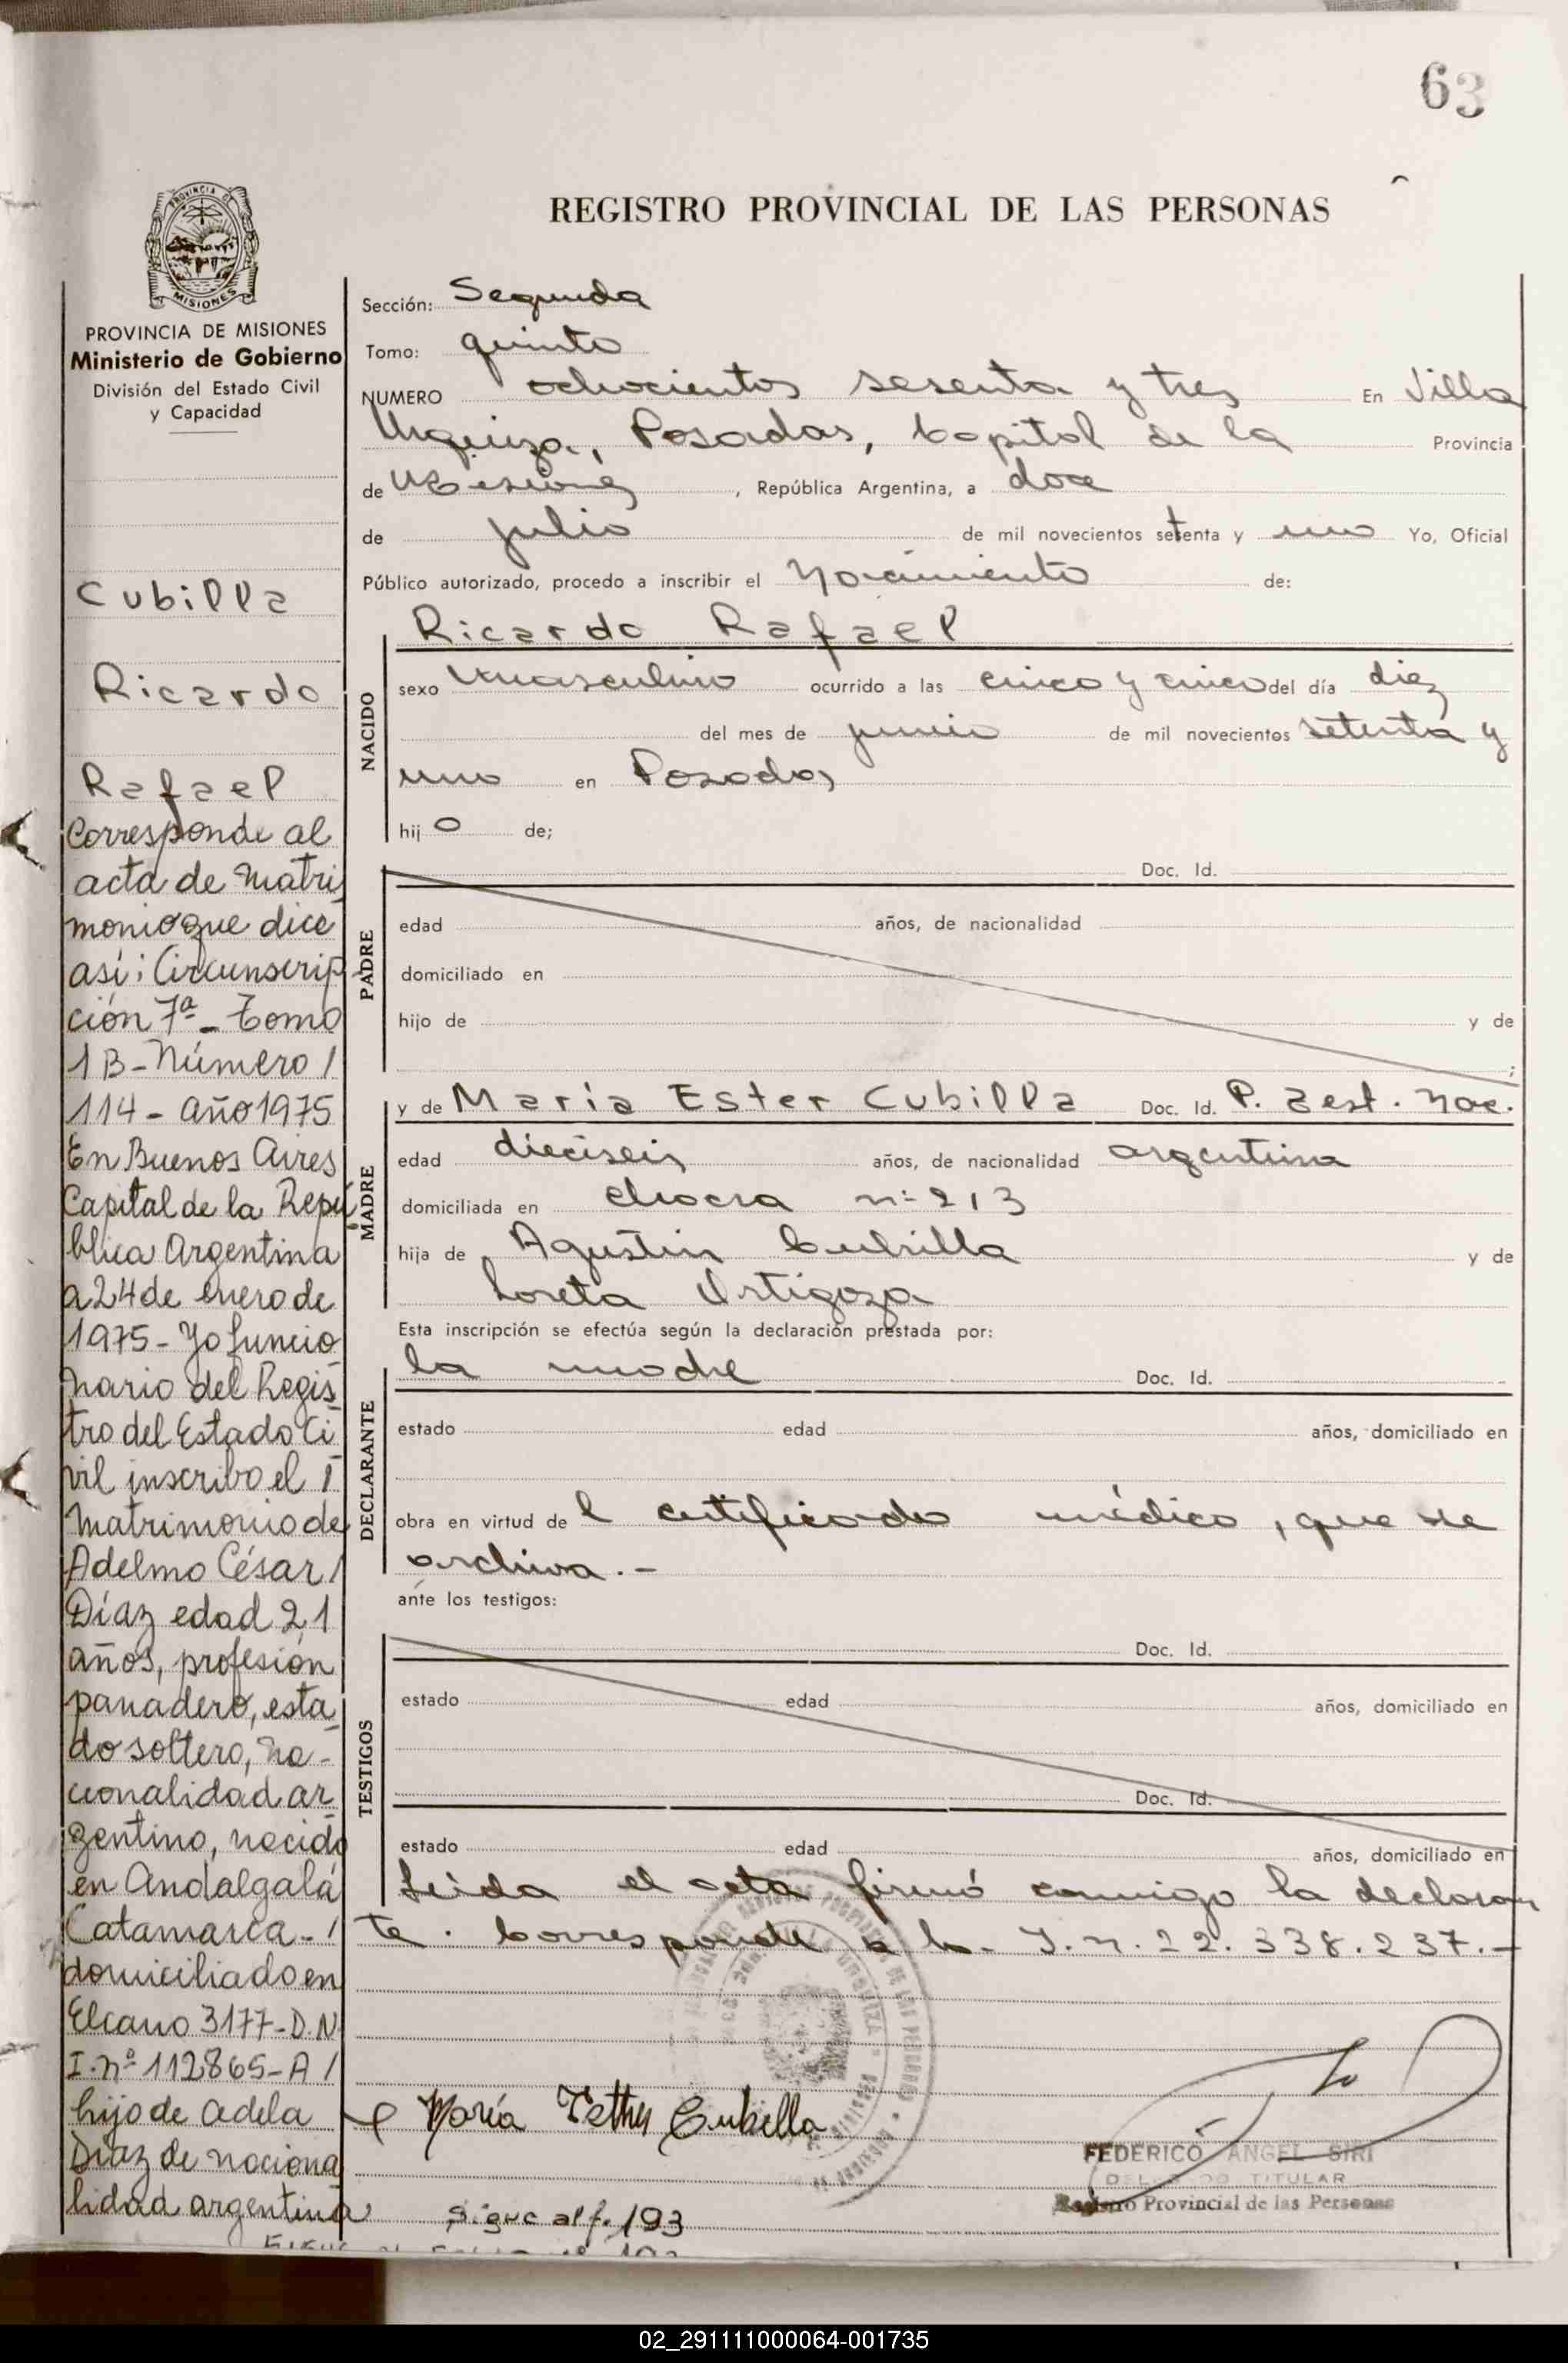 63
REGISTRO PROVINCIAL DE LAS PERSONAS
PROVINCIA DE
MISIONES
PROVINCIA DE MISIONES
Ministerio de Gobierno
División del Estado Civil
y Capacidad
Cubilla
Ricardo
Rafael
Corresponde al
acta de Matri
monio que dice
así: Circunscrip
ción 7ª - Tomo
1B - Número /
114 - año 1975
En Buenos Aires
Capital de la Repú
blica Argentina
a 24 de enero de
1975 - Yo funcio
nario del Regis
tro del Estado Ci
vil inscribo el
Matrimonio de
Adelmo César /
Díaz edad 21
años, profesión
panadero, esta
do soltero, na-
cionalidad ar
gentino, nacido
en Andalgalá
Catamarca - /
domiciliado en
Elcano 3177 - D.N
I. nº 112865 - A /
hijo de Adela
Díaz de naciona
lidad argentina
Sección: Segunda
Tomo: quinto
NUMERO ochocientos sesenta y tres En Villa
Urquiza, Posadas, Capital de la Provincia
de Misiones, República Argentina, a doce
de julio de mil novecientos setenta y uno Yo, Oficial
Público autorizado, procedo a inscribir el Nacimiento de:
Ricardo Rafael
NACIDO
sexo masculino ocurrido a las cinco y cinco del día diez
del mes de junio de mil novecientos setenta y
uno en Posadas
hijo de;
PADRE
Doc. Id.
edad años, de nacionalidad
domiciliado en
hijo de y de
;
MADRE
y de María Ester Cubilla Doc. Id. P. Nac.
edad dieciseis años, de nacionalidad argentina
domiciliada en chacra nº 213
hija de Agustin Cubilla y de
Loreta Ortigoza
Esta inscripción se efectúa según la declaración prestada por:
DECLARANTE
la madre Doc. Id.
estado edad años, domiciliado en
obra en virtud del certificado médico, que se
archiva.-
ante los testigos:
TESTIGOS
Doc. Id.
estado edad años, domiciliado en
Doc. Id.
estado edad años, domiciliado en
Leida el acta firmó conmigo la declaran
te. Corresponde a la 22.338.237.-
María Esther Cubilla
FEDERICO ANGEL SIRI
DELEGADO TITULAR
Registro Provincial de las Personas
Sigue al f. 193
02_291111000064-001735